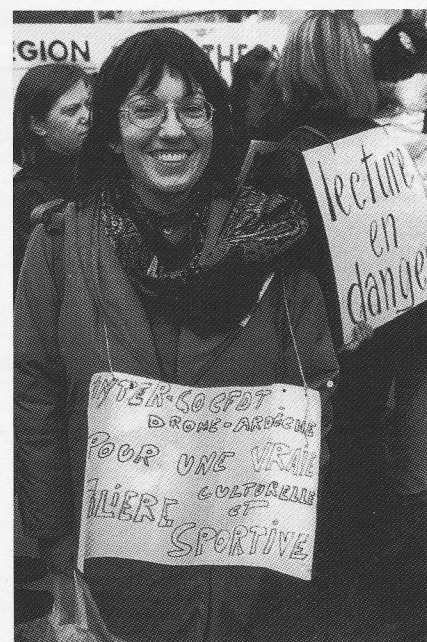 ÉGION
lecture
en
dange
INTER-CO CFDT
DROME-ARDÈCHE
POUR UNE VRAIE
FILIÈRE CULTURELLE
ET
SPORTIVE